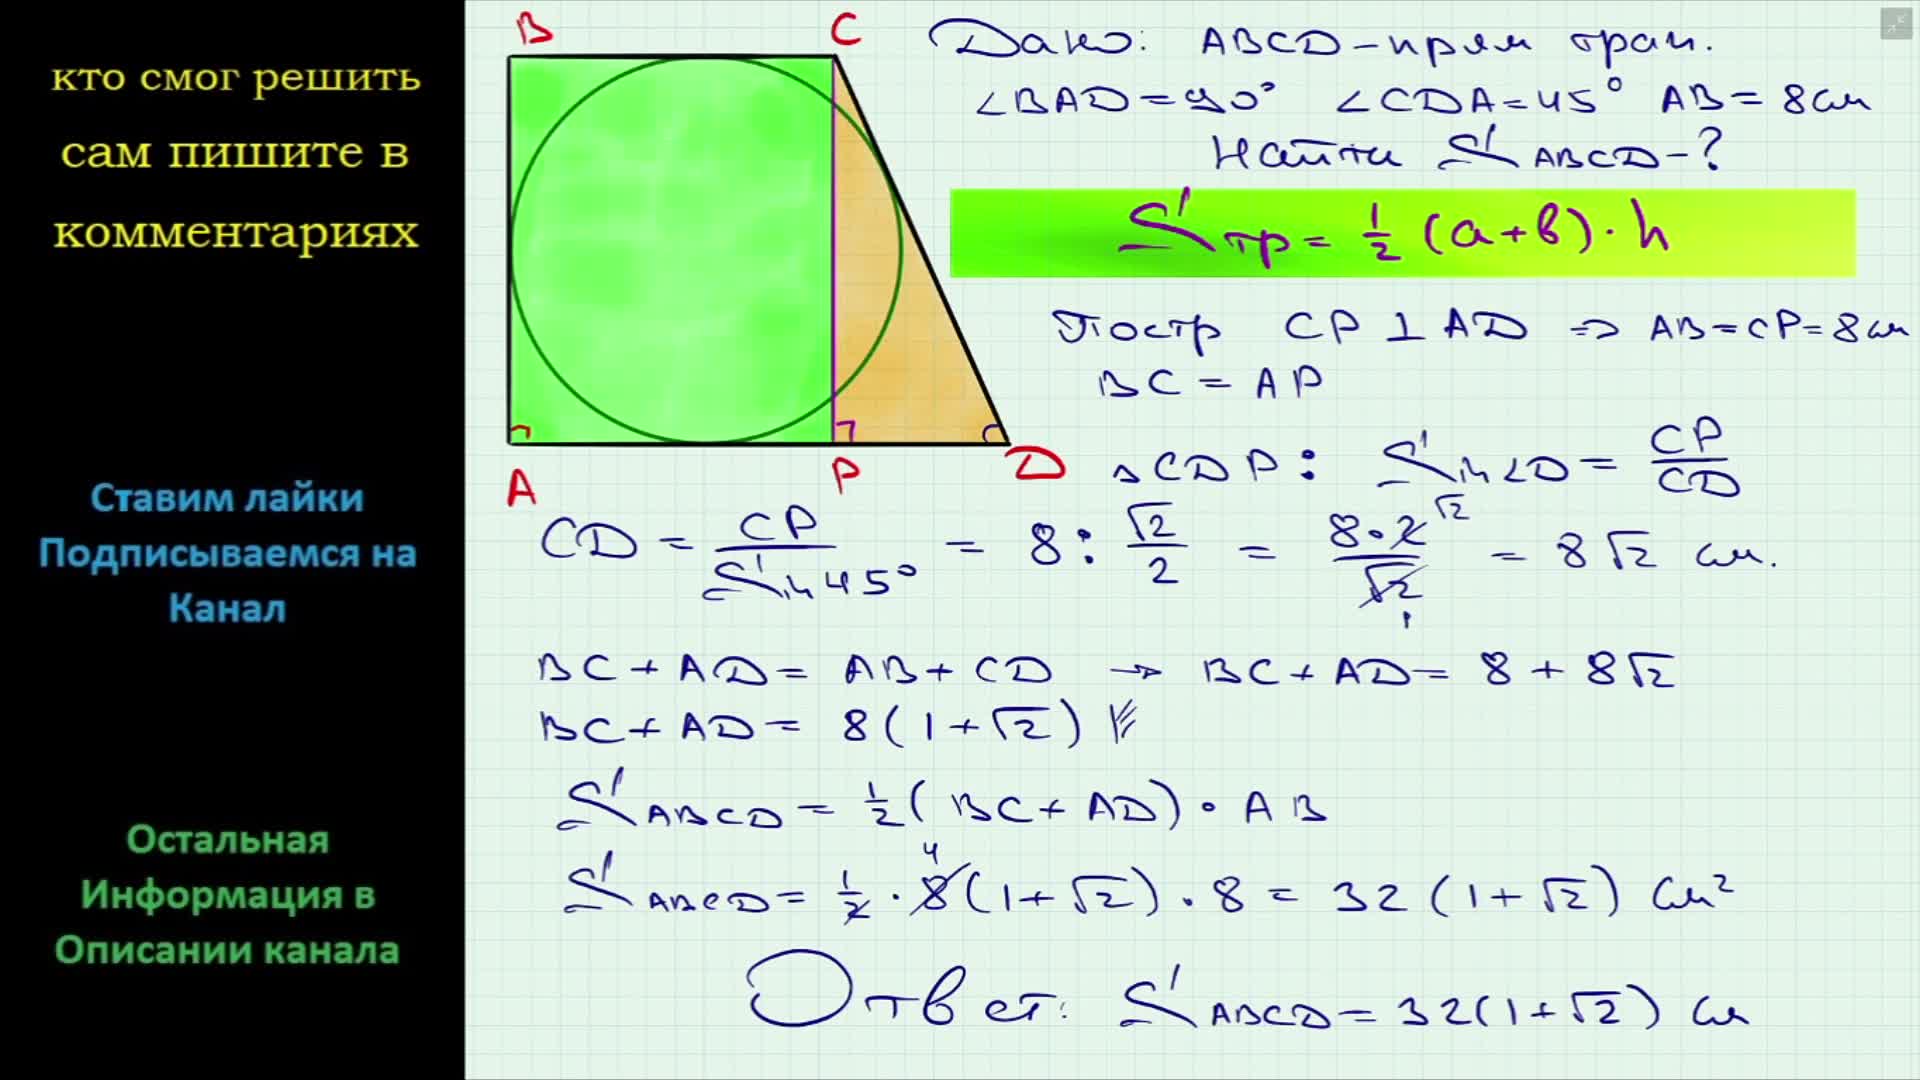 кто смог решить
сам пишите в
комментариях
Ставим лайки
Подписываемся на
Канал
Остальная
Информация в
Описании канала
B C
A P D
Дано: ABCD - прям трап.
∠BAD = 90° ∠CDA = 45° AB = 8 см
Найти S ABCD - ?
Sтр = 1/2 (a + b) · h
Постр CP ⊥ AD ⇒ AB = CP = 8 см
BC = AP
△CDP: Sin∠D = CP/CD
CD = CP/Sin 45° = 8 : √2/2 = 8·2/√2 = 8√2 см.
BC + AD = AB + CD → BC + AD = 8 + 8√2
BC + AD = 8(1 + √2)
S ABCD = 1/2 (BC + AD) · AB
S ABCD = 1/2 · 8(1 + √2) · 8 = 32 (1 + √2) см²
Ответ: S ABCD = 32(1 + √2) см